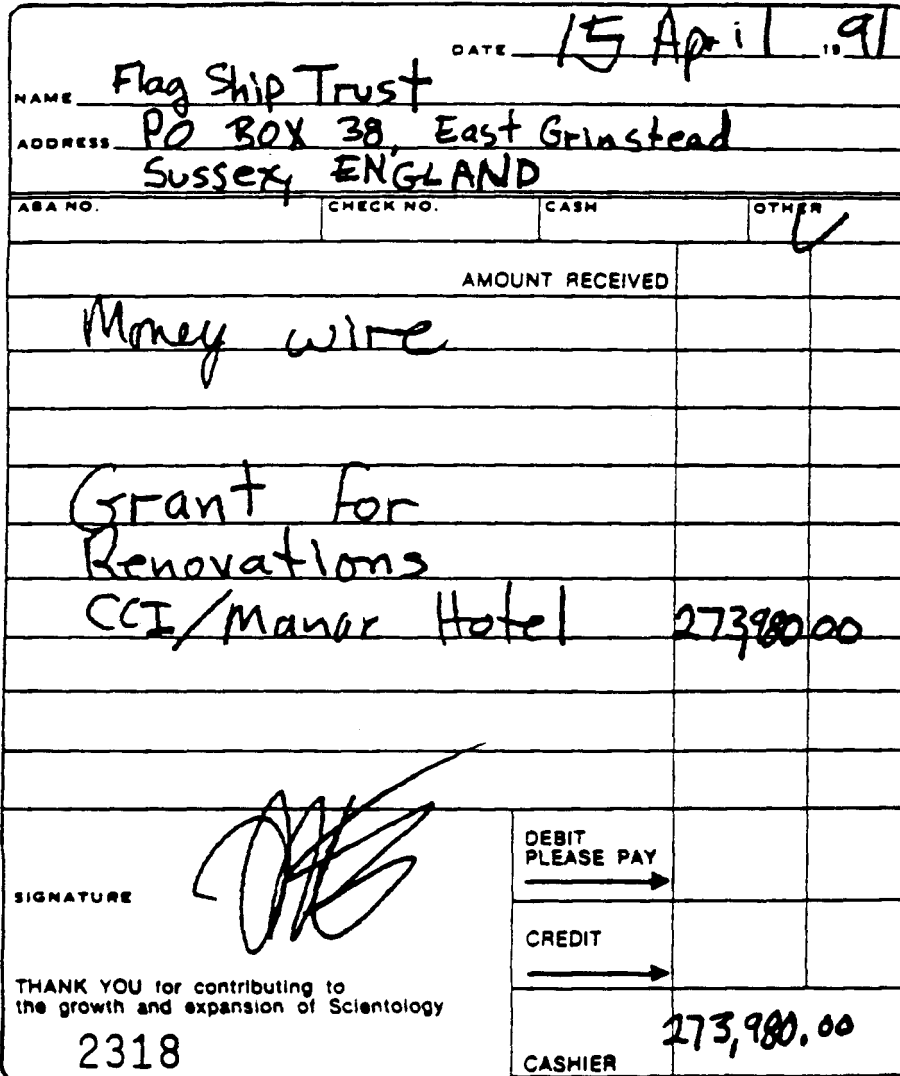 DATE 15 April 19 91
NAME Flag Ship Trust
ADDRESS PO BOX 38, East Grinstead
Sussex, ENGLAND
ABA NO. CHECK NO. CASH OTHER ✓
AMOUNT RECEIVED
Money wire
Grant for
Renovations
CCI/Manor Hotel 273,980.00
DEBIT
PLEASE PAY
SIGNATURE
CREDIT
THANK YOU for contributing to
the growth and expansion of Scientology
2318
CASHIER 273,980.00